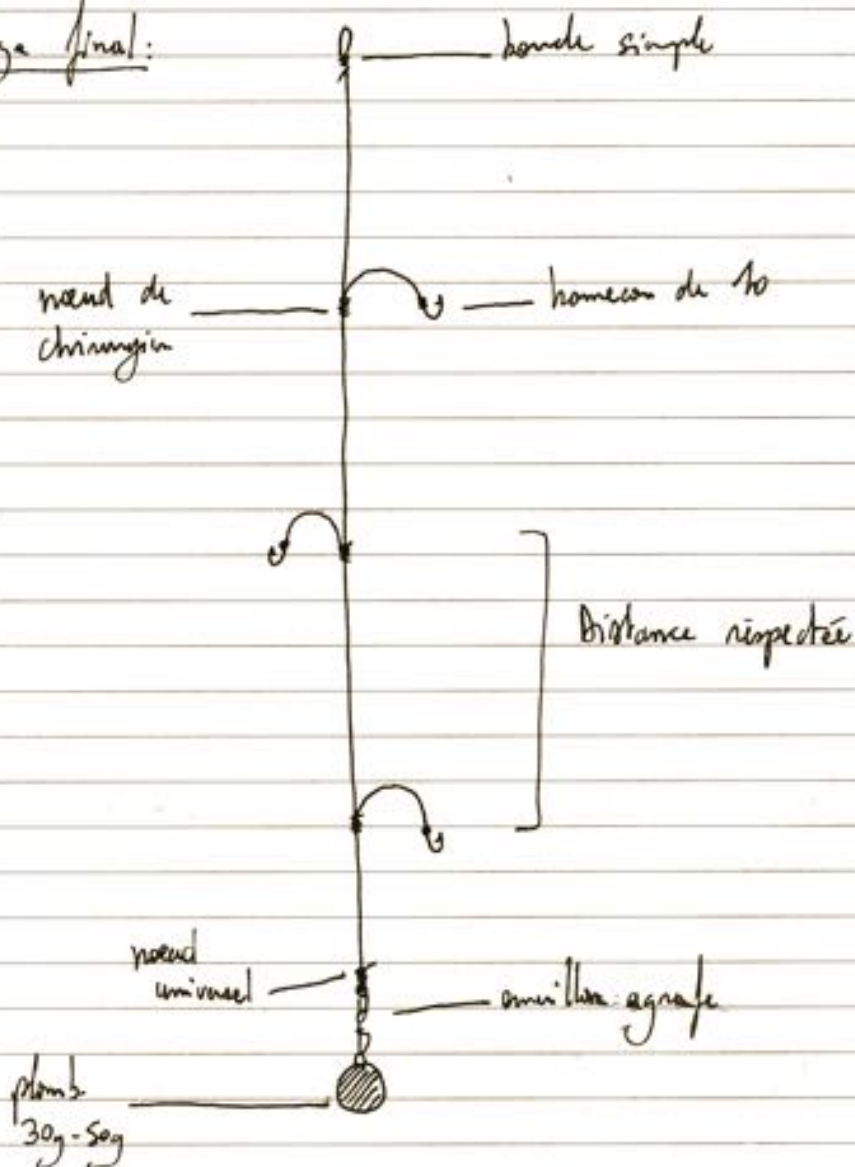 final:
boucle simple
nœud de
chirurgien
hameçon de 10
Distance respectée
nœud
universel
émerillon agrafe
plomb
30g-50g